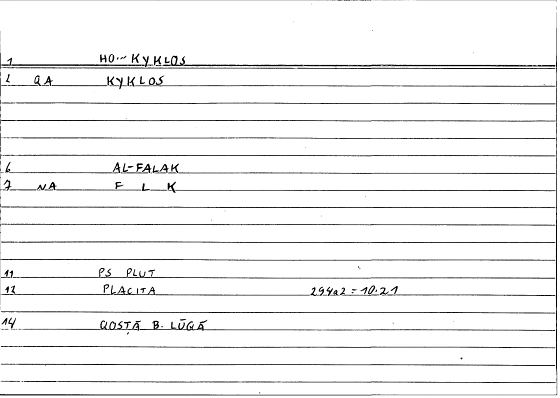 1 HO-- KYKLOS
2 QA KYKLOS
6 AL-FALAK
7 NA F L K
11 PS PLUT
12 PLACITA 294a2 = 10.21
14 QOSṬĀ B. LŪQĀ